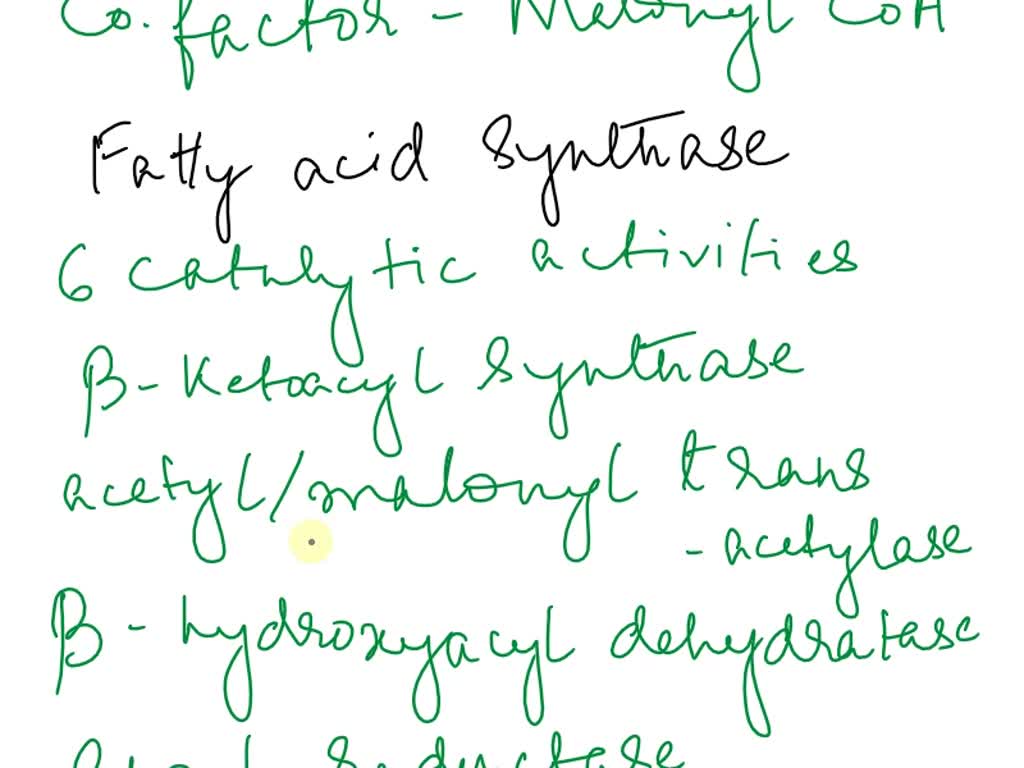 Co. factor - Malonyl CoA
Fatty acid synthase
6 catalytic activities
β-Ketoacyl synthase
acetyl/malonyl trans
-acetylase
β-hydroxyacyl dehydratase
reductase